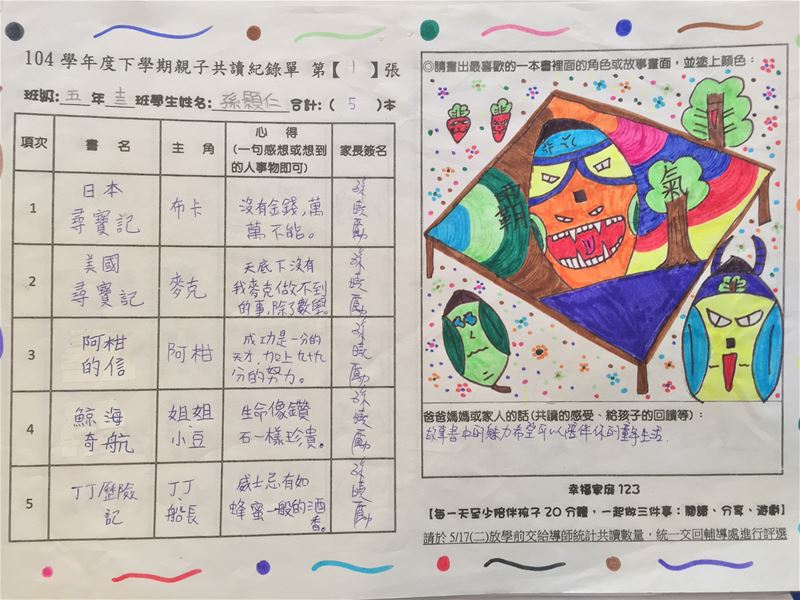 104 學年度下學期親子共讀紀錄單 第【 1 】張
班級: 五 年 士三 班學生姓名: 孫顥仁 合計: ( 5 )本
項次 書 名 主 角 心 得
(一句感想或想到
的人事物即可) 家長簽名
1 日本
尋寶記 布卡 沒有金錢,萬
萬不能。
2 美國
尋寶記 麥克 天底下沒有
我麥克做不到
的事,除了數學。
3 阿柑
的信 阿柑 成功是一分的
天才,加上九十九
分的努力。
4 鯨海
奇航 姐姐、
小豆 生命像鑽
石一樣珍貴。
5 丁丁歷險
記 丁丁、
船長 威士忌有如
蜂蜜一般的酒
香。
◎請畫出最喜歡的一本書裡面的角色或故事畫面,並塗上顏色:
霸
氣
爸爸媽媽或家人的話(共讀的感受、給孩子的回饋等):
故事書中的魅力希望可以陪伴你的童年生活
幸福家庭 123
【每一天至少陪伴孩子 20 分鐘,一起做三件事:閱讀、分享、遊戲】
請於 5/17(二)放學前交給導師統計共讀數量,統一交回輔導處進行評選